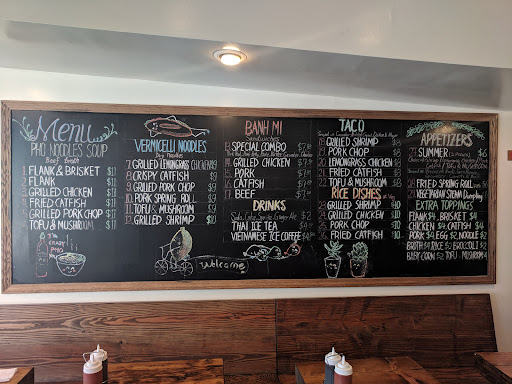 Menu
PHO NOODLES SOUP
Beef broth
1. FLANK & BRISKET $11
2. FLANK $11
3. GRILLED CHICKEN $11
4. FRIED CATFISH $11
5. GRILLED PORK CHOP $11
6. TOFU & MUSHROOM $11
CRAZY
PHO
VERMICELLI NOODLES
Dry Noodles
7. GRILLED LEMONGRASS CHICKEN
8. CRISPY CATFISH
9. GRILLED PORK CHOP
10. PORK SPRING ROLL
11. TOFU & MUSHROOM
12. GRILLED SHRIMP
Welcome
BANH MI
Sandwiches
SPECIAL COMBO
GRILLED CHICKEN
15. PORK
CATFISH
BEEF
DRINKS
Soda Coke Sprite Ginger Ale $2
THAI ICE TEA
VIETNAMESE ICE COFFEE
TACO
GRILLED SHRIMP
PORK CHOP
LEMONGRASS CHICKEN
FRIED CATFISH
TOFU & MUSHROOM
RICE DISHES
GRILLED SHRIMP
GRILLED CHICKEN
PORK CHOP
FRIED CATFISH
APPETIZERS
SUMMER
FRIED SPRING ROLL
VEGETARIAN STEAM Dumpling
EXTRA TOPPINGS
FLANK $4 BRISKET $4
CHICKEN $4 CATFISH $4
PORK $4 EGG $2 NOODLE $2
BROTH $2 RICE $2 BROCCOLI $2
BABY CORN $2 TOFU & MUSHROOM $4